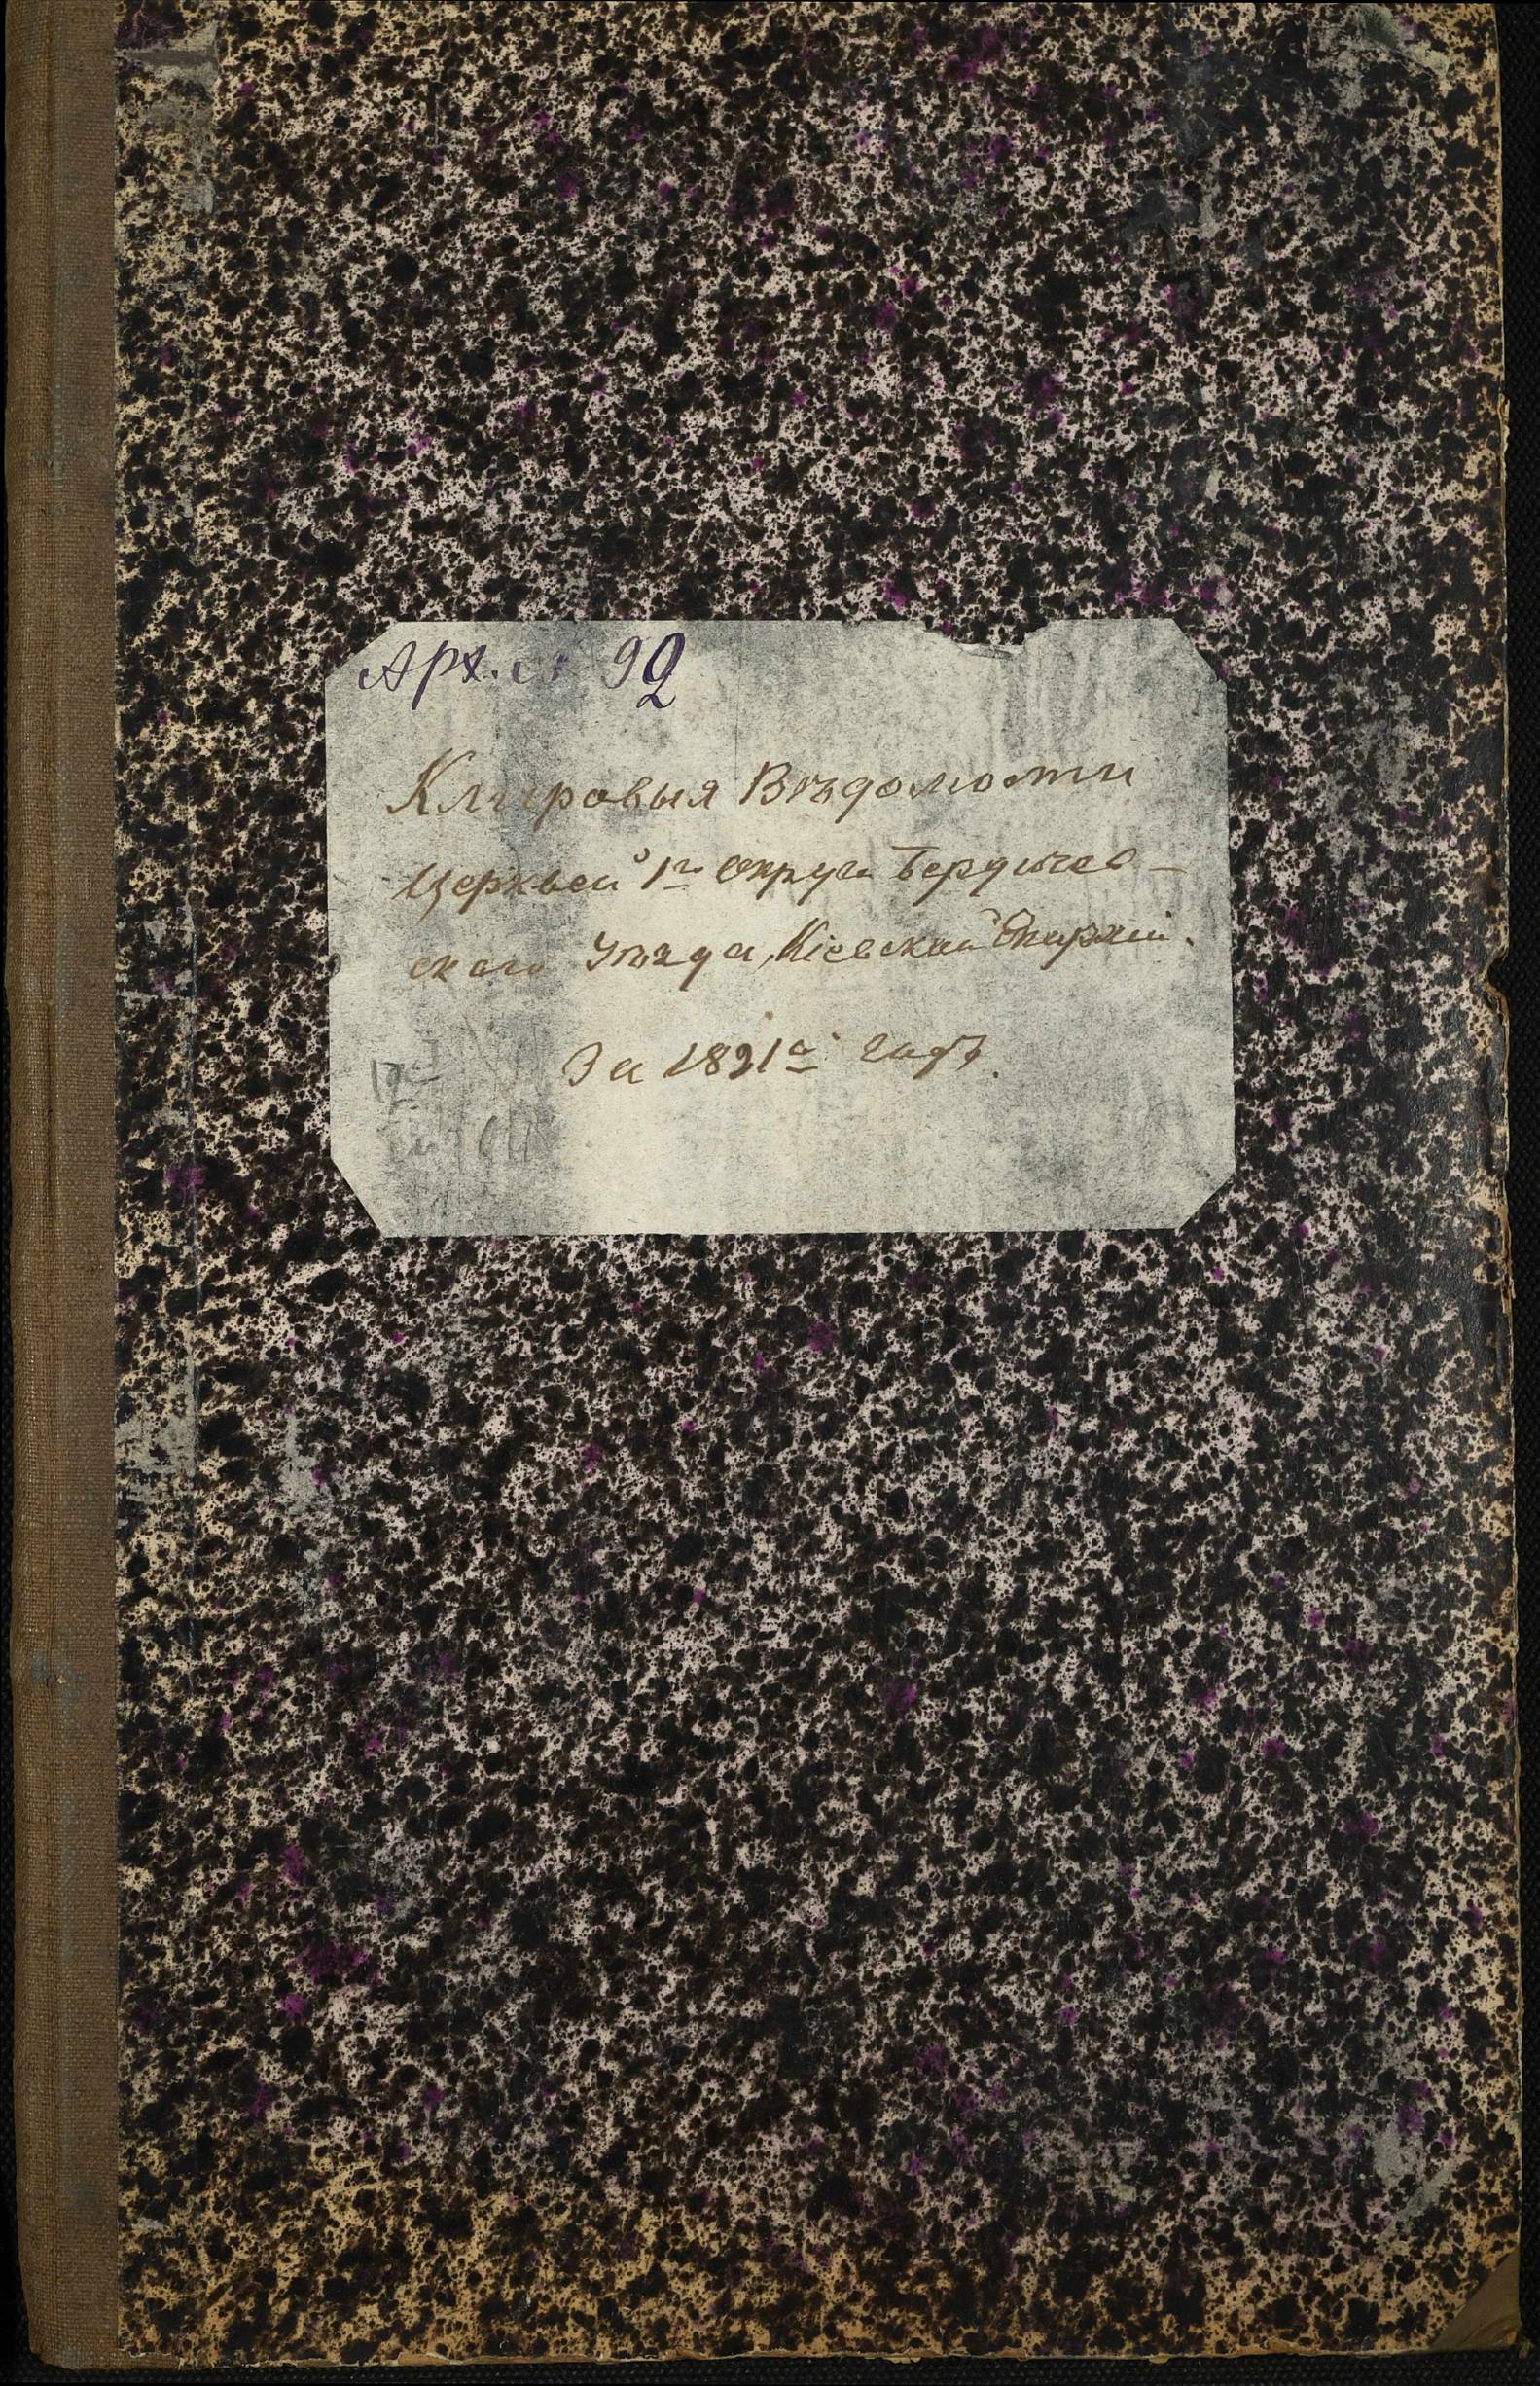 Арх. № 92
Клировыя Вѣдомости
Церквей 1го Округа Бердичев-
скаго Уѣзда, Кіевской Епархіи.
За 1891й годъ.